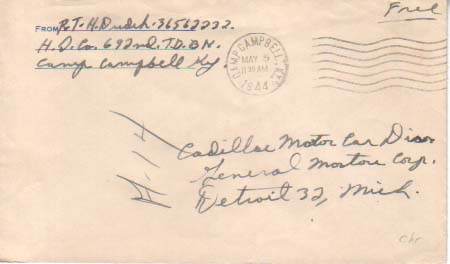 Free
FROM P.T. H. Dudek - 36562232.
H.Q. Co. 692nd. T.D. BN.
Camp Campbell Ky.
CAMP CAMPBELL, KY.
MAY 5
11 30 AM
1944
H.I.H
Cadillac Motor Car Divn
General Motors Corp.
Detroit 32, Mich.